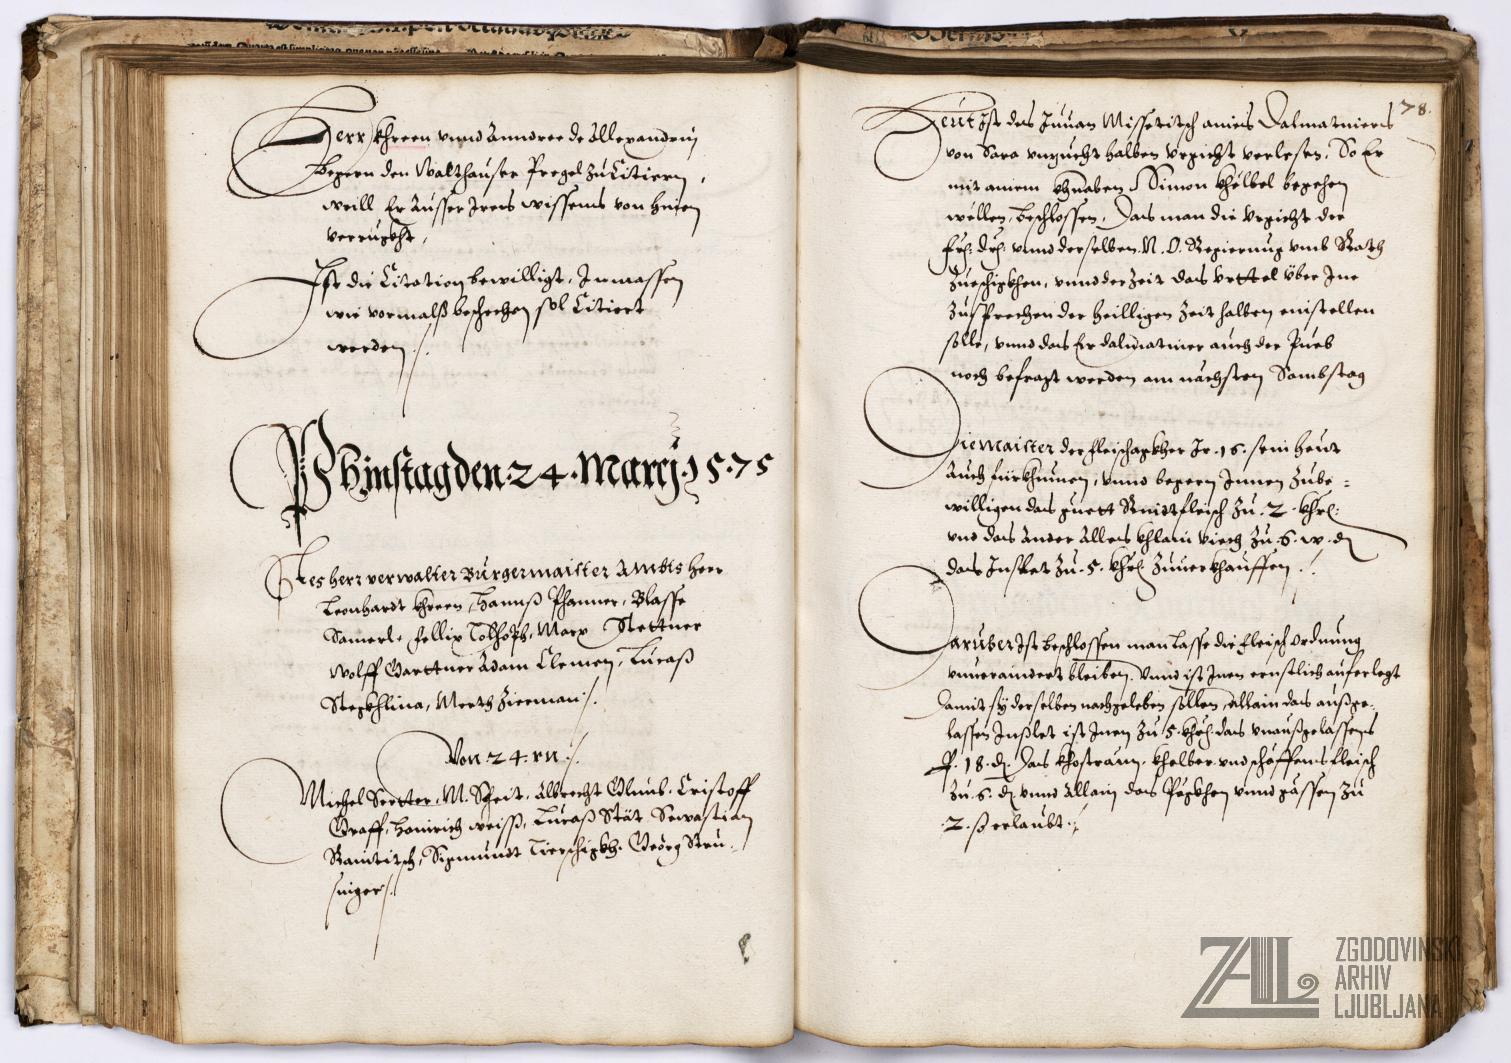 Herr Khreen vnnd Anndree de Allexandrin
begern den Walthauser Pregel zu Citiern,
weill Er ausser Ires wissens von hinen
verrugkht,
Ist die Citation bewilligt, Inmassen
wie vormalß beschechen sol Citiert
werden
Phinstag den 24 Marcÿ 1575
Herr verwalter Burgermaister Ambts herr
Leonhardt Khreen, Hannß Phanner, Blasse
Samerl, Fellix, Marx Stettner
Wolff Garttner Adam Clemen, Lucaß
Stegkhlina, Merth Zierman
Von 24.rn
Michel, M. Scheit, Albrecht, Cristoff
Graff, Hainrich weiss, Lucaß Stät Sewastian
Ranitsch, Sigmundt. Geörg Stru-
sniger
78.
Heut Ist des Iuuan Missetitsch aines Dalmatiners
von Sara vnzucht halben vrgicht verlesen, So Er
mit ainem khnaben Simon Khelbel begehen
wellen, beschlossen, Das man die vrgicht der
Frl: Drl: vnnd derselben N.O. Regierung vmb Rath
zueschigkhen, vnnd der Zeit das vrttel über Ine
zusprechen der heilligen Zeit halben einstellen
solle, vnnd das Er dalmatiner auch der Pueb
noch befragt werden am nachsten Sambstag
Die maister der fleischagkher Ir .16. sein heut
auch fürkhumen, vnnd begern Innen zube-
willigen das guett Rindtfleisch zu .2. khrl:
vnd das ander alles khlain viech zu .6. w. d
das Inslet zu .5. khrl zuuerkhauffen
Daruber Ist beschlossen man lasse die fleisch Ordnung
vnuerandert bleiben. Vnnd ist Inen ernstlich auferlegt
damit sÿ derselben nachgeleben sollen, allain das außge-
lassen Inßlet ist Inen zu 5. khrl: das vnaußgelassens
p. 18. d. Das khostraun, khelber vnd schöffens fleisch
zu .6. d vnnd allain das Pegkhen vnnd gassen zu
.2. ß erlaubt
ZAL
ZGODOVINSKI
ARHIV
LJUBLJANA